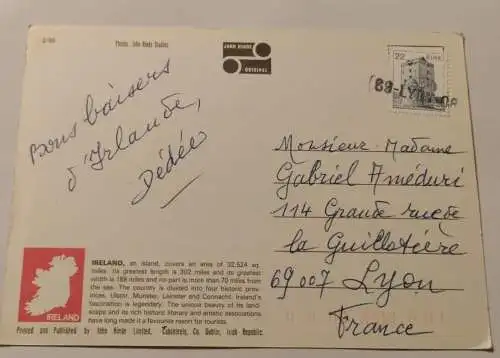 Photo: John Hinde Studios
JOHN HINDE
ORIGINAL
22 éire
69-LYON
Bons baisers
d'Irlande,
Dédée
Monsieur Madame
Gabriel Améduri
114 Grande rue de
la Guillotière
69007 Lyon
France
IRELAND, an island, covers an area of 32,524 sq.
miles. Its greatest length is 302 miles and its greatest
width is 189 miles and no part is more than 70 miles from
the sea. The country is divided into four historic prov-
inces, Ulster, Munster, Leinster and Connacht. Ireland's
fascination is legendary. The unique beauty of its land-
scape and its rich historic literary and artistic associations
have long made it a favourite resort for tourists.
IRELAND
Printed and Published by John Hinde Limited, Cabinteely, Co. Dublin, Irish Republic.